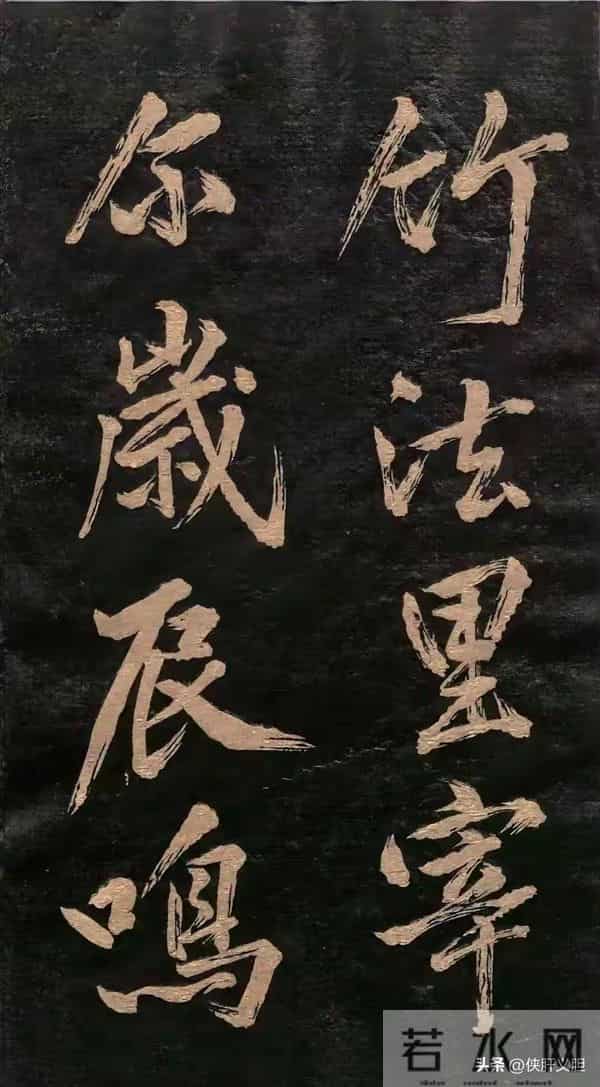 竹法里宰
歲辰鳴
若水网
头条 @侠肝义胆